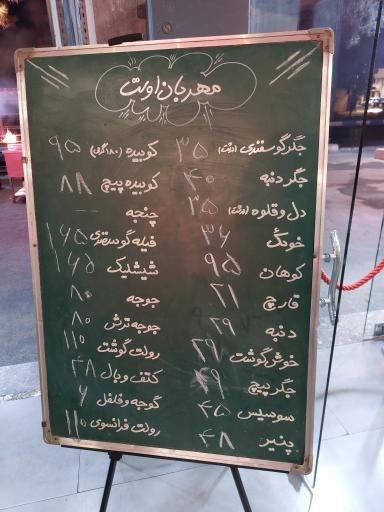 مهربان اوت
جگر گوسفندی (درشت) ۳۵
جگر دنبه ۴۰
دل و قلوه (درشت) ۳۵
خوئک ۳۶
کوهان ۹۵
قارچ ۲۱
دنبه ۲۹
خوش گوشت ۲۹
جگر پیچ ۴۹
سوسیس ۴۵
پنیر ۴۸
کوبیده (۱۸۰گرمی) ۹۵
کوبیده پیچ ۸۸
چنجه --
فیله گوسفندی ۱۶۵
شیشلیک ۱۶۵
جوجه ۸۰
جوجه ترش ۸۰
رولت گوشت ۱۱۰
کتف و بال ۴۸
گوجه و فلفل ۶
رولت فرانسوی ۱۱۰